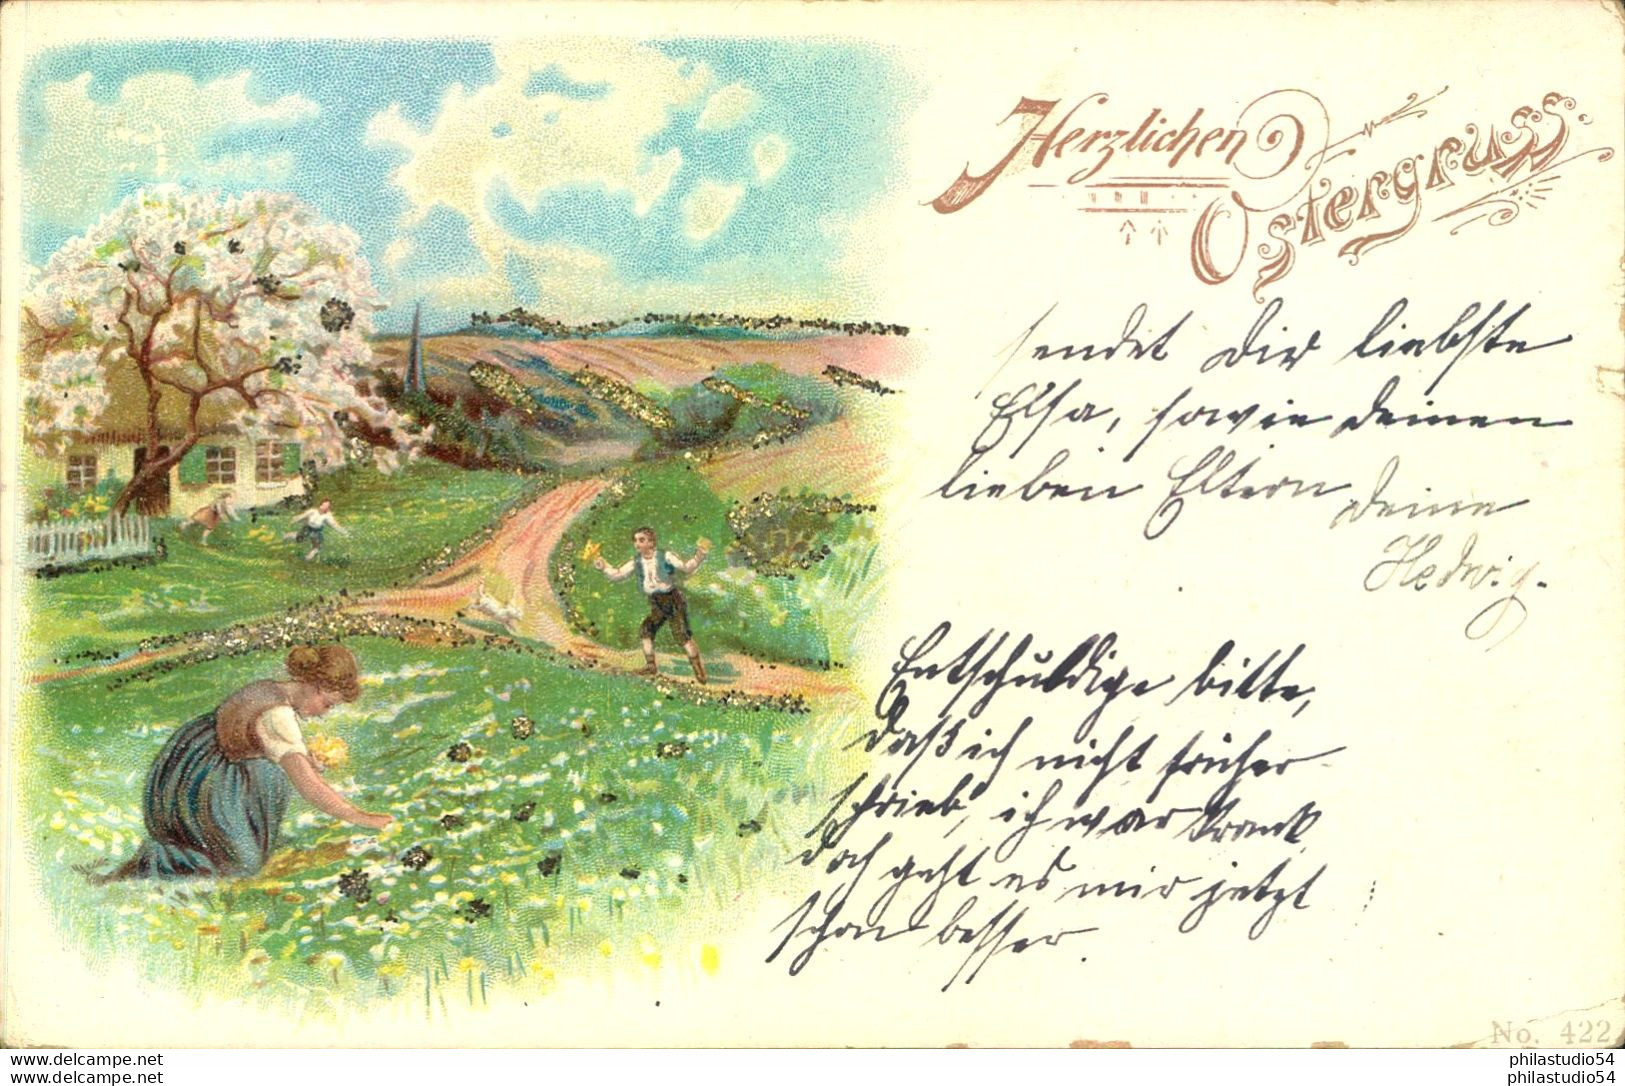 Herzlichen
Ostergruss
sendet Dir liebste
Elsa, sowie Deinen
lieben Eltern Deine
Hedwig.
Entschuldige bitte,
daß ich nicht früher
schrieb, ich war krank
doch geht es mir jetzt
schon besser.
No. 422
www.delcampe.net
philastudio54
www.delcampe.net
philastudio54